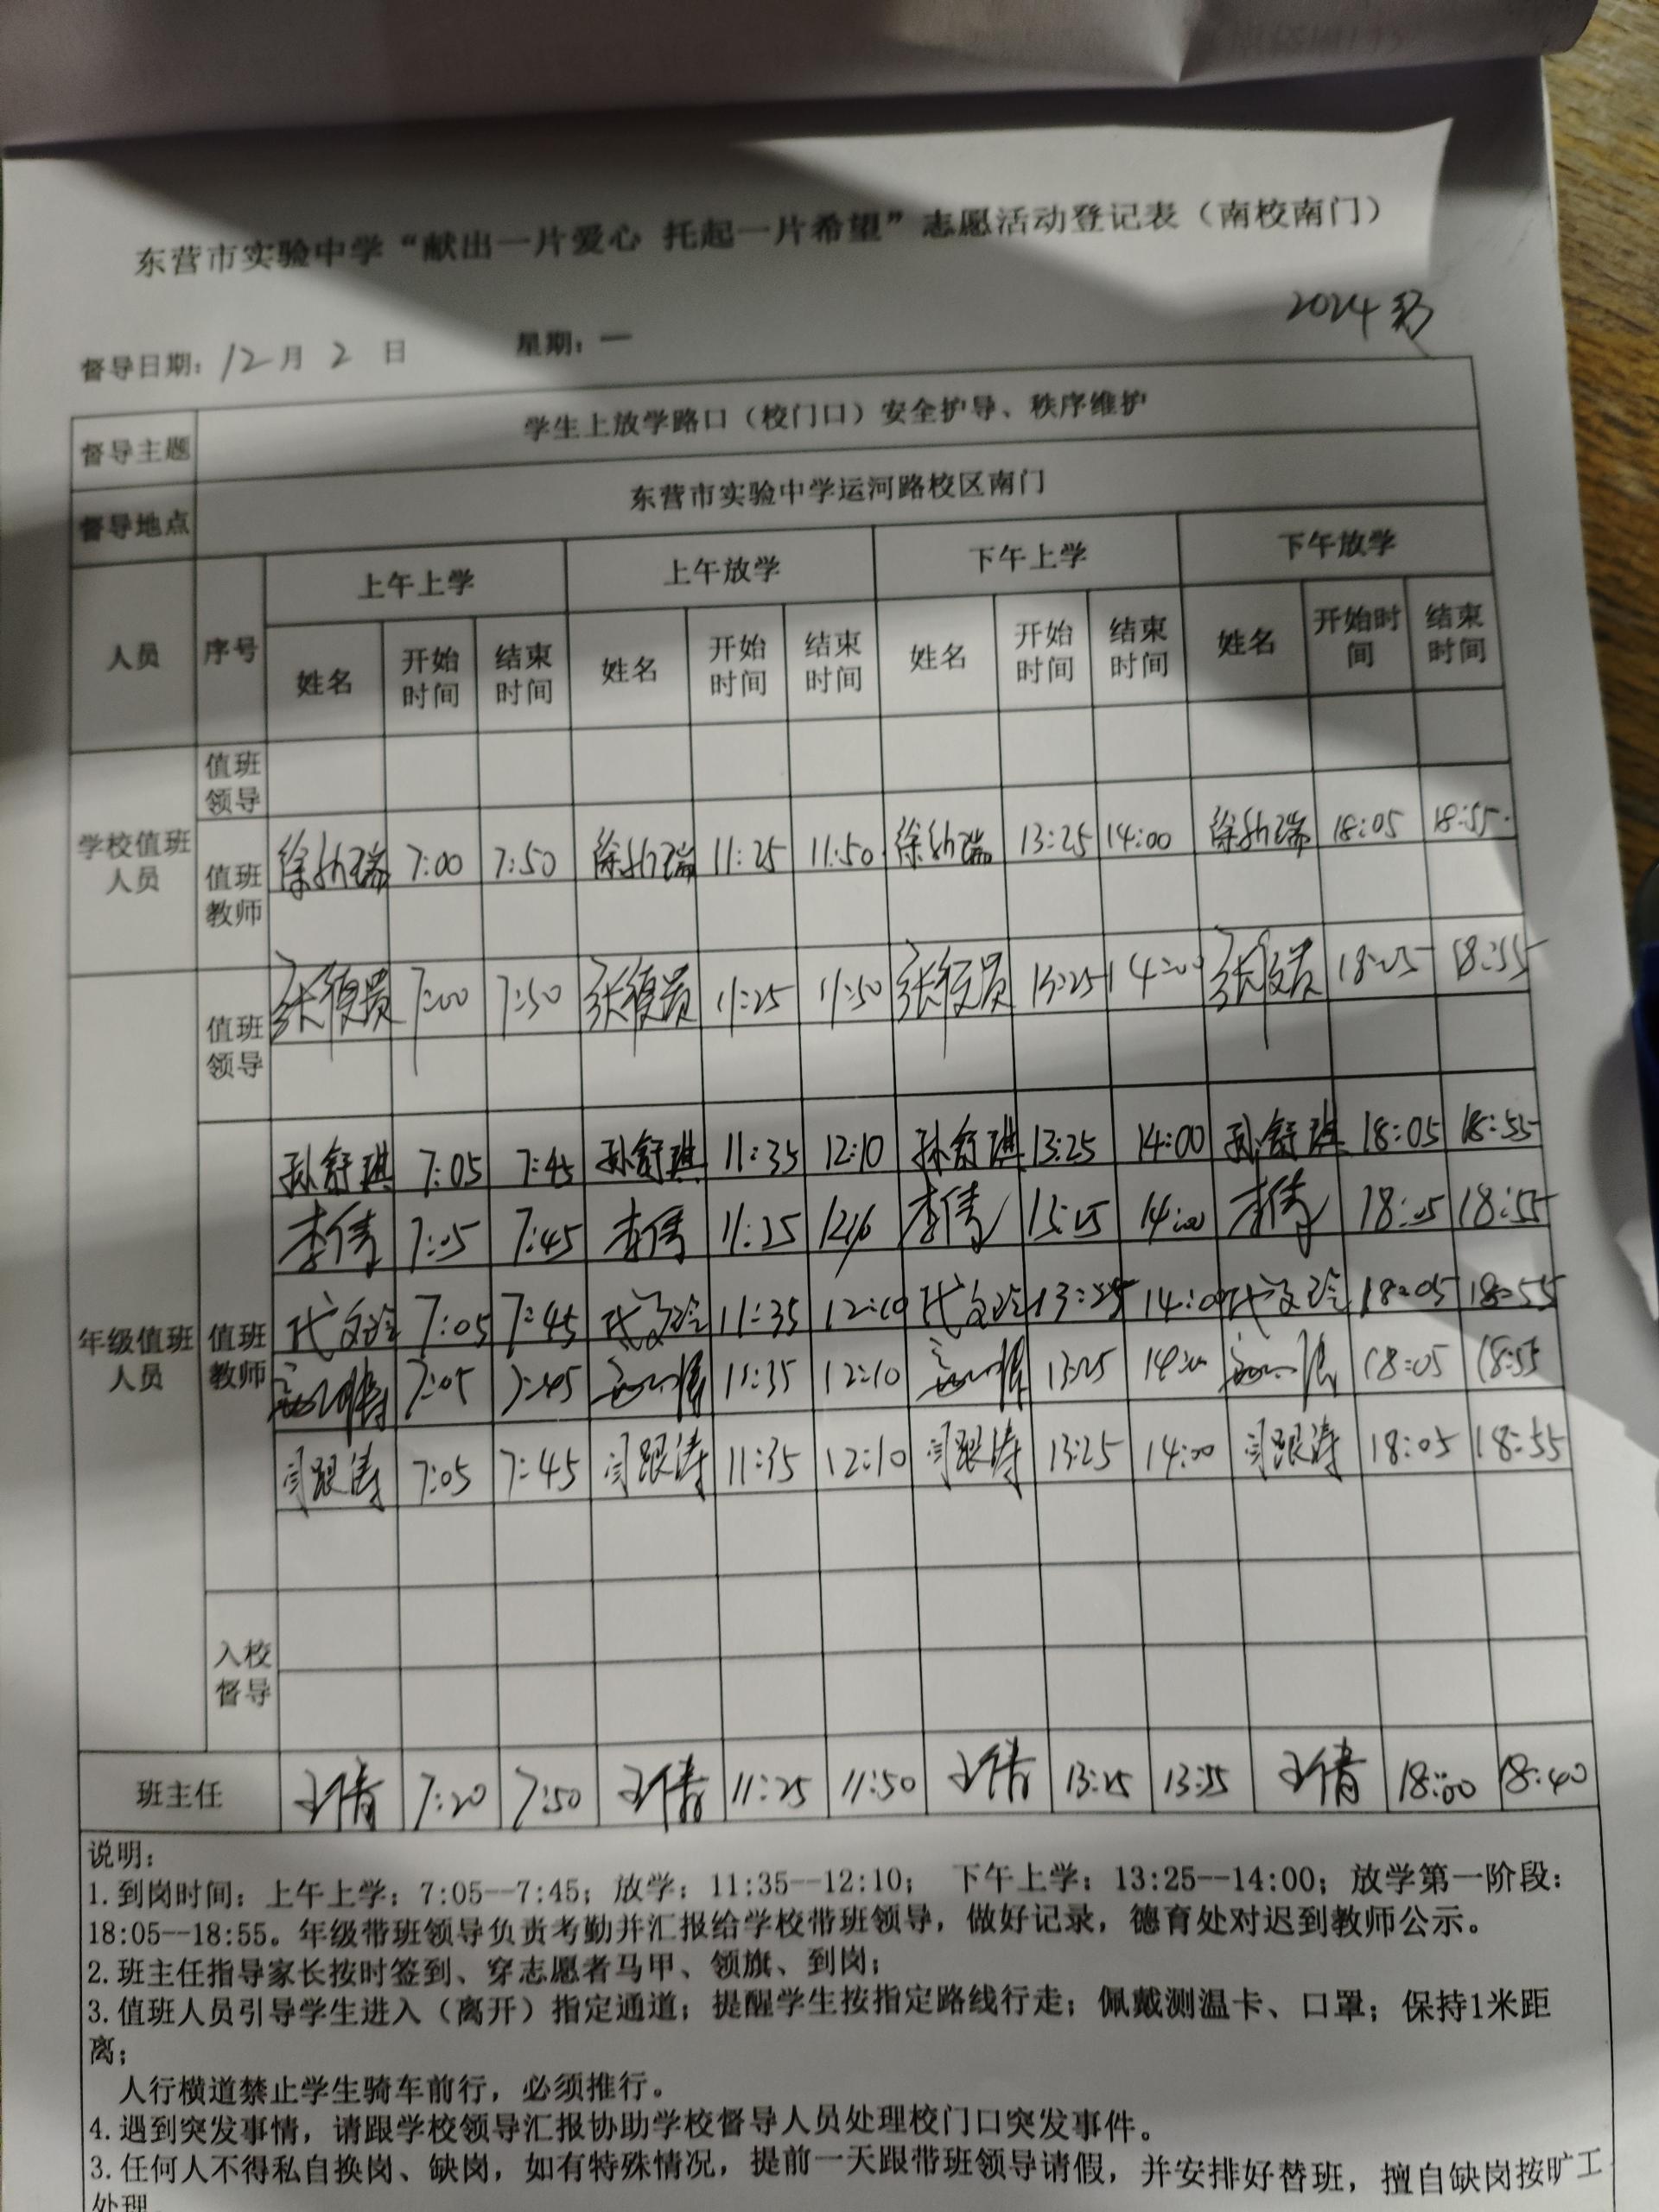 东营市实验中学“献出一片爱心 托起一片希望”志愿活动登记表（南校南门）
2024
督导日期：12月 2 日 星期：一
督导主题 学生上放学路口（校门口）安全护导、秩序维护
督导地点 东营市实验中学运河路校区南门
人员 序号 上午上学 上午放学 下午上学 下午放学
姓名 开始时间 结束时间 姓名 开始时间 结束时间 姓名 开始时间 结束时间 姓名 开始时间 结束时间
学校值班人员 值班领导
值班教师 徐 瑞 7:00 7:50 徐 瑞 11:25 11:50 徐 瑞 13:25 14:00 徐 瑞 18:05 18:55
年级值班人员 值班领导 张 贵 7:00 7:50 张 贵 11:25 11:50 张 贵 13:25 14:00 张 贵 18:05 18:55
值班教师 孙舒琪 7:05 7:45 孙舒琪 11:35 12:10 孙舒琪 13:25 14:00 孙舒琪 18:05 18:55
李倩 7:05 7:45 李倩 11:25 李倩 13:25 14:00 李倩 18:05 18:55
代文玲 7:05 7:45 代文玲 11:35 12:10 代文玲 13:25 14:00 代文玲 18:05 18:55
7:05 7:45 11:35 12:10 13:25 14:00 18:05 18:55
闫跟涛 7:05 7:45 闫跟涛 11:35 12:10 闫跟涛 13:25 14:00 闫跟涛 18:05 18:55
入校督导
班主任 王倩 7:20 7:50 王倩 11:25 11:50 王倩 13:25 13:55 王倩 18:00 18:40
说明：
1.到岗时间：上午上学：7:05--7:45；放学：11:35--12:10； 下午上学：13:25--14:00；放学第一阶段：
18:05--18:55。年级带班领导负责考勤并汇报给学校带班领导，做好记录，德育处对迟到教师公示。
2.班主任指导家长按时签到、穿志愿者马甲、领旗、到岗；
3.值班人员引导学生进入（离开）指定通道；提醒学生按指定路线行走；佩戴测温卡、口罩；保持1米距
离；
人行横道禁止学生骑车前行，必须推行。
4.遇到突发事情，请跟学校领导汇报协助学校督导人员处理校门口突发事件。
3.任何人不得私自换岗、缺岗，如有特殊情况，提前一天跟带班领导请假，并安排好替班，擅自缺岗按旷工
处理